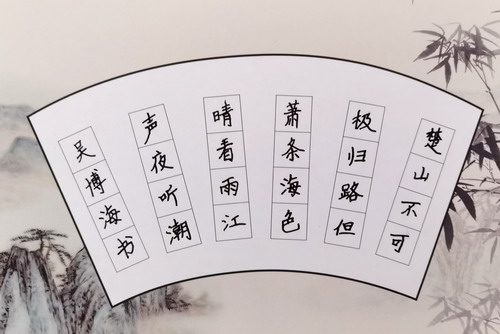 楚山不可
极归路但
萧条海色
晴看雨江
声夜听潮
吴博海书